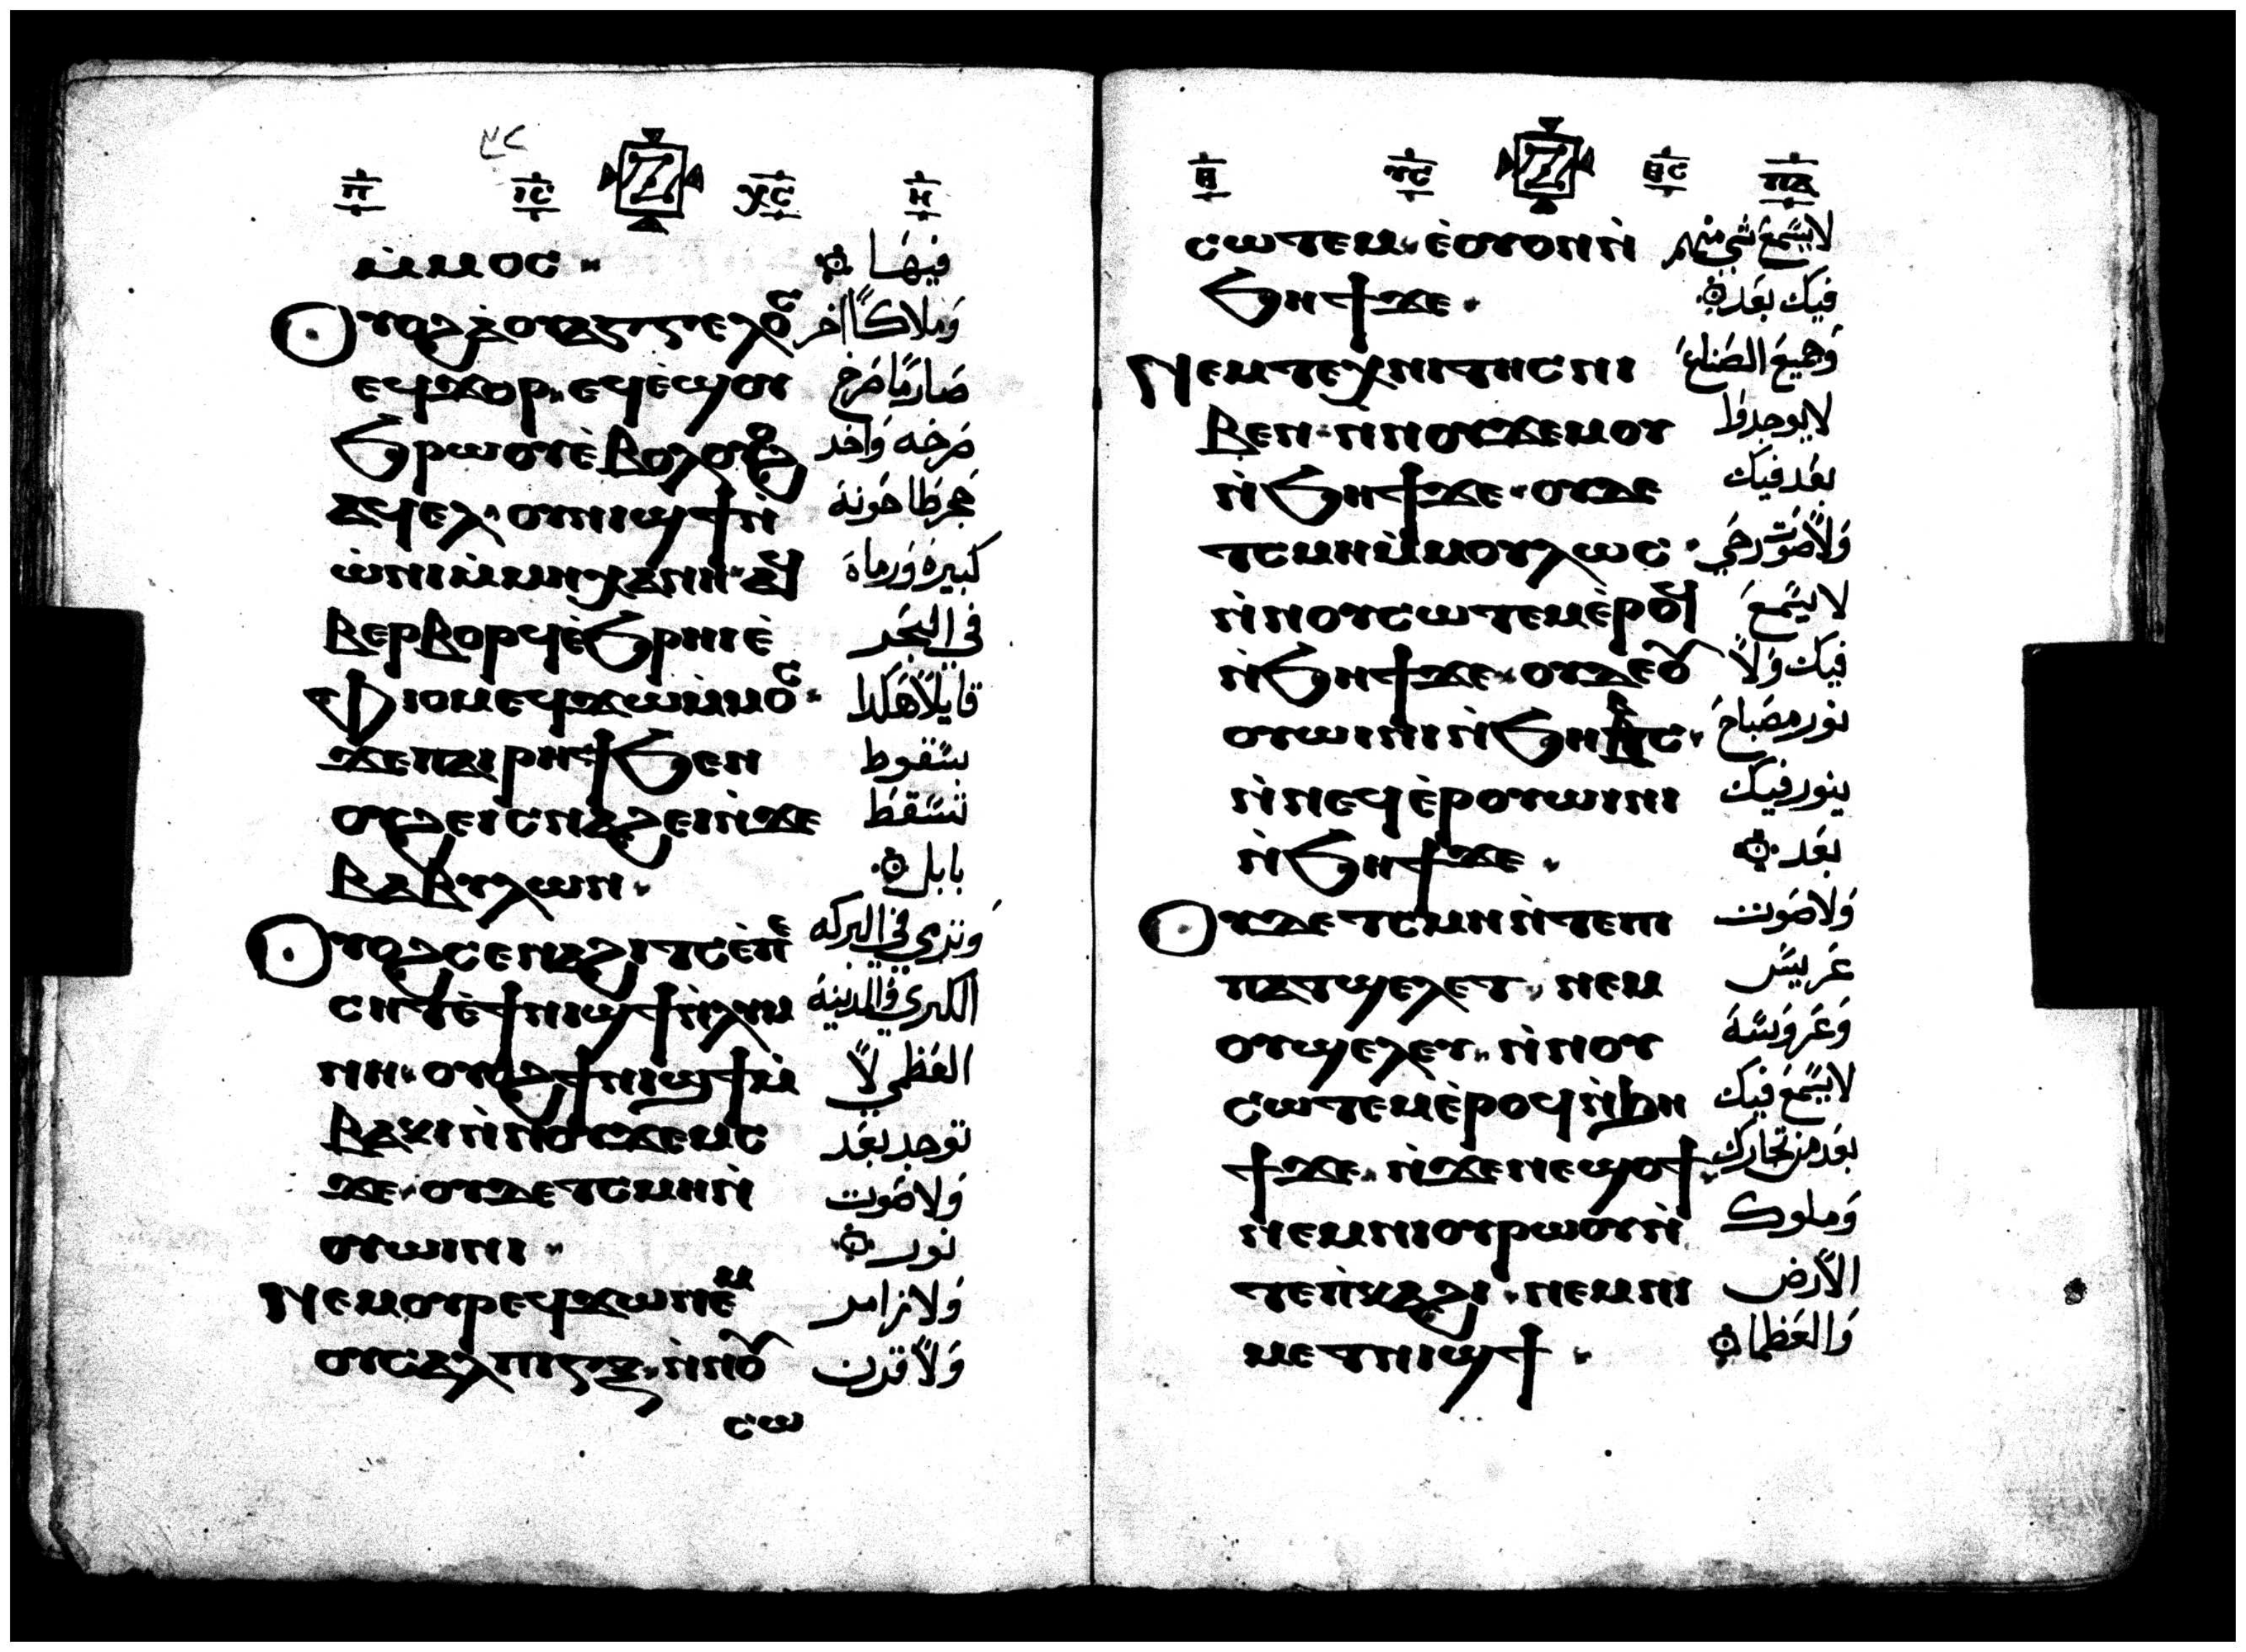 ⲡ ⲓⲥ Ⲍ ⲭⲥ ⲏ
ⲙ̀ⲙⲟⲥ فيها
ⲟⲩⲟϩ ⲁ̀ⲟⲩⲁⲅⲅⲉⲗⲟⲥ وملاكًا اخر
ⲉϥϫⲟⲣ ⲉϥⲉ̀ϣⲟⲩ صارمًا صرخ
ϧⲣⲱⲟⲩ ⲉ̀ⲃⲟⲗ ⲟⲩⲟϩ صرخه واخد
ⲁϥⲉⲗ ⲟⲩⲛⲓϣϯ ⲛ̀ حجر طاحونة
ⲱ̀ⲛⲓ ⲙ̀ⲙⲏⲭⲁⲛⲏ ⲁϥ كبيرة ورماة
ⲃⲉⲣⲃⲟⲣϥ ⲉ̀ϧⲣⲏⲓ ⲉ̀ في البحر
ⲫⲓⲟⲙ ⲉϥϫⲱ ⲙ̀ⲙⲟⲥ قايلاً هكدا
ϫⲉ ⲡⲁⲓⲣⲏϯ ϧⲉⲛ بسقوط
ⲟⲩϩⲉⲓ ⲥⲛⲁϩⲉⲓ ⲛ̀ϫⲉ تسقط
ⲃⲁⲃⲩⲗⲱⲛ بابل
ⲟⲩⲟϩ ⲥⲉⲛⲁϩⲓⲧⲥ ⲉ̀ⲡⲉ وتدي في البركه
ⲥⲏⲧ ⲉ̀ϯⲛⲓϣϯ ⲛ̀ⲗⲩⲙ الكبري والمدينة
ⲛⲏ ⲟⲩⲟϩ ϯⲛⲓϣϯ ⲙ̀ العظمي لا
ⲃⲁⲕⲓ ⲛ̀ⲛⲟⲩϫⲉⲙⲥ توجد بعد
ϫⲉ ⲟⲩⲇⲉ ⲧⲥⲙⲏ ⲛ̀ ولا صوت
ⲟⲩⲱⲓⲛⲓ نور
ⲛⲉⲙ ⲟⲩⲣⲉϥϫⲱ ⲛⲉⲙ ولا زامر
ⲟⲩⲥⲁⲗⲡⲓⲅⲝ ⲛ̀ⲛⲟⲩ ولا قرن
ⲥⲱ
ⲑ ⲩⲥ Ⲍ ⲑⲥ ⲡⲁ
ⲥⲱⲧⲉⲙ ⲉ̀ⲟⲩⲟⲛ ⲛ̀ لا يسمع شي منهم
ϧⲏϯ ϫⲉ فيك بعد
ⲛⲉⲙ ⲧⲉⲭⲛⲓⲧⲏⲥ ⲛⲓ وجميع الصناع
ⲃⲉⲛ ⲛ̀ⲛⲟⲩϫⲉⲙⲟⲩ لا يوجدوا
ⲛ̀ϧⲏϯ ϫⲉ ⲟⲩⲇⲉ بعد فيك
ⲧⲥⲙⲏ ⲙ̀ⲙⲟⲩⲗⲱⲥ ولا صوت رحي
ⲛ̀ⲛⲟⲩⲥⲱⲧⲉⲙ ⲉ̀ⲣⲟϥ لا يسمع
ⲛ̀ϧⲏϯ ϫⲉ ⲟⲩⲇⲉ ⲟⲩ فيك ولا
ⲟⲩⲱⲓⲛⲓ ⲛ̀ϧⲏⲃⲥ نور مصباح
ⲛ̀ⲛⲉϥⲉ̀ⲣⲟⲩⲱⲓⲛⲓ ينور فيك
ⲛ̀ϧⲏϯ ϫⲉ بعد
ⲟⲩⲇⲉ ⲧⲥⲙⲏ ⲛ̀ⲧⲉⲡⲓ ولا صوت
ⲡⲁⲧϣⲉⲗⲉⲧ ⲛⲉⲙ عريس
ⲟⲩϣⲉⲗⲉⲧ ⲛ̀ⲛⲟⲩ وعروسة
ⲥⲱⲧⲉⲙ ⲉ̀ⲣⲟϥ ⲛ̀ϧⲏ لا يسمع فيك
ϯ ϫⲉ ⲛ̀ϫⲉ ⲛⲉϣⲟϯ بعد من تجارك
ⲛⲉⲙ ⲛⲓⲟⲩⲣⲱⲟⲩ ⲛ̀ وملوك
ⲧⲉ ⲡ̀ⲕⲁϩⲓ ⲛⲉⲙ ⲛⲓ الارض
ⲙⲉⲧⲛⲓϣϯ والعظما